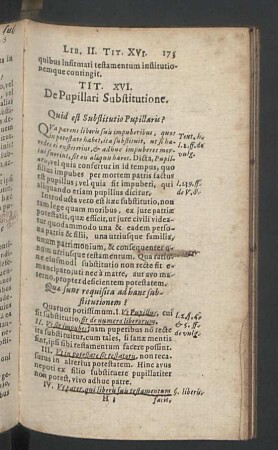 LIB. II. TIT. XVI. 175
quibus infirmari testamentum institutio-
nemque contingit.
TIT. XVI.
De Pupillari Substitutione.
Quid est Substitutio Pupillaris?
QVa parens liberis suis impuberibus, quos
in potestate habet, ita substituit, ut si hæ-
redes ei extiterint, & adhuc impuberes mor-
tui fuerint, sit eis aliquis hæres. Dicta, Pupil-
laris, vel quia consertur in id tempus, quo
impuberes per mortem patris factus
est pupillus; vel quia sit impuberi, qui
aliquando etiam pupillus dicitur.
Introducta veto est hæc substitutio, non
tam lege quam moribus, ex jure patriæ
potestatis, quæ efficit, ut jure civili vide-
antur quodammodo una & eadem perso-
na patris & filii, una utriusque familia,
unum patrimonium, & consequenter
num utriusque testamentum. Qua ratio-
ne ejusmodi substitutio non recte fit e-
mancipato, uti nec à matre, sur avo ma-
terno, propter deficientem potestatem.
Quæ sunt requisita ad hanc sub-
stitutionem?
Quatuor potissimum. I. Vt Pupillus, cui
fit substitutio, sit de numero liberorum.
II. Vt sit impubes; nam puberibus no recte
ita substituitur, cum tales, si sanx mentis
sint, ipsi sibi testamentum facere possint.
III. Vt in potestate sit testatoris, non neca-
rius in alterius potestatem. Hinc avus
nepoti ex filio substituere pupillariter
non potest, vivo adhuc patre.
IV. Vt pater, qui liberis suis testamentum
H 1
Text. h.
l. 2. ff. de
vulg.
l. 139. ff.
de V. O.
l. 2. §. 40
& 5. ff.
de vulg.
§. liberis
facit,